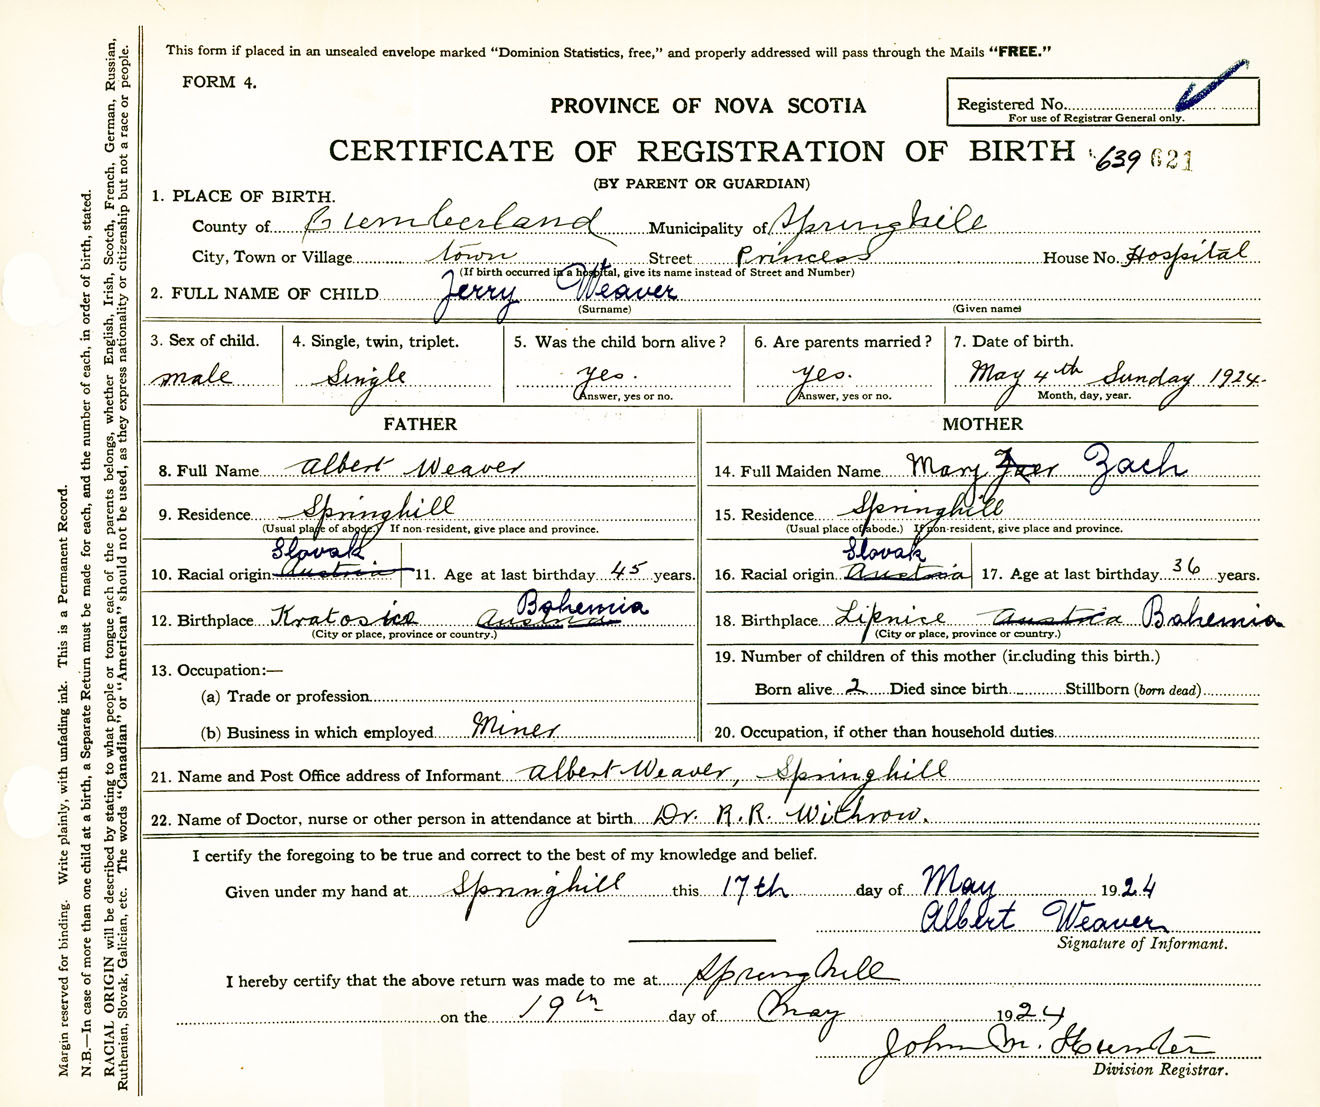 This form if placed in an unsealed envelope marked "Dominion Statistics, free," and properly addressed will pass through the Mails "FREE."
FORM 4.
PROVINCE OF NOVA SCOTIA
Registered No.
For use of Registrar General only.
CERTIFICATE OF REGISTRATION OF BIRTH 639 621
(BY PARENT OR GUARDIAN)
1. PLACE OF BIRTH.
County of Cumberland Municipality of Springhill
City, Town or Village town Street Princess House No. Hospital
(If birth occurred in a hospital, give its name instead of Street and Number)
2. FULL NAME OF CHILD Jerry Weaver
(Surname) (Given name)
3. Sex of child. 4. Single, twin, triplet. 5. Was the child born alive? 6. Are parents married? 7. Date of birth.
male Single yes. yes. May 4th Sunday 1924.
Answer, yes or no. Answer, yes or no. Month, day, year.
FATHER MOTHER
8. Full Name Albert Weaver 14. Full Maiden Name Mary Zach
9. Residence Springhill 15. Residence Springhill
(Usual place of abode.) If non-resident, give place and province. (Usual place of abode.) If non-resident, give place and province.
Slovak Slovak
10. Racial origin Austria 11. Age at last birthday 45 years. 16. Racial origin Austria 17. Age at last birthday 36 years.
Bohemia
12. Birthplace Kratosice Austria 18. Birthplace Lipnice Austria Bohemia
(City or place, province or country.) (City or place, province or country.)
13. Occupation:—
(a) Trade or profession
(b) Business in which employed Miner
19. Number of children of this mother (including this birth.)
Born alive 2 Died since birth Stillborn (born dead)
20. Occupation, if other than household duties
21. Name and Post Office address of Informant Albert Weaver, Springhill
22. Name of Doctor, nurse or other person in attendance at birth Dr. R.R. Withrow.
I certify the foregoing to be true and correct to the best of my knowledge and belief.
Given under my hand at Springhill this 17th day of May 1924
Albert Weaver
Signature of Informant.
I hereby certify that the above return was made to me at Springhill
on the 19th day of May 1924
John M. Hunter
Division Registrar.
Margin reserved for binding. Write plainly, with unfading ink. This is a Permanent Record.
N.B.—In case of more than one child at a birth, a Separate Return must be made for each, and the number of each, in order of birth, stated.
RACIAL ORIGIN will be described by stating to what people or tongue each of the parents belongs, whether English, Irish, Scotch, French, German, Russian,
Ruthenian, Slovak, Galician, etc. The words "Canadian" or "American" should not be used, as they express nationality or citizenship but not a race or people.